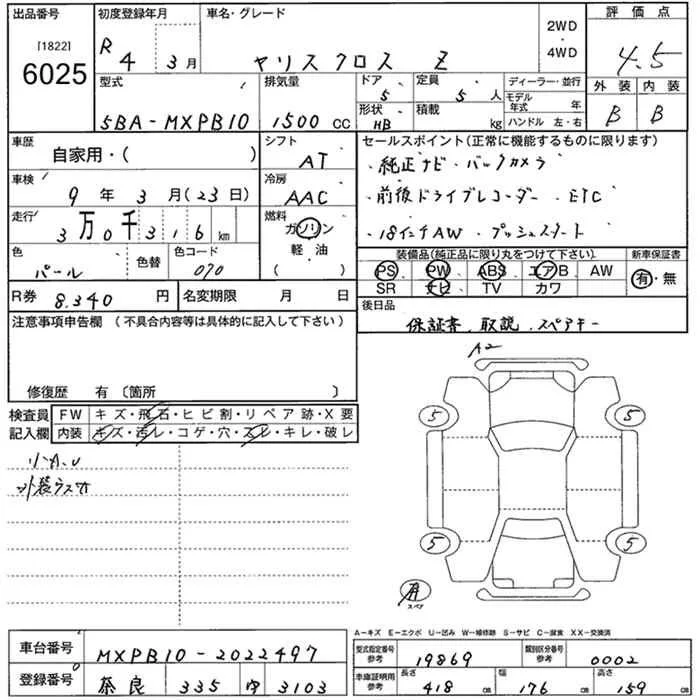 出品番号
[1822]
6025
初度登録年月
R 4 3月
車名・グレード
ヤリス クロス Z
2WD
・
4WD
評価点
4.5
外装 内装
B B
型式
5BA-MXPB10
排気量
1500 CC
ドア 5
定員 5 人
形状 HB
積載 kg
ディーラー・並行
モデル年式 年
ハンドル 左・右
車歴
自家用・( )
シフト
AT
車検
9 年 3 月(23日)
冷房
AAC
走行
3万0千316 km
燃料
ガソリン
軽油
( )
色
パール
色替
色コード
070
セールスポイント(正常に機能するものに限ります)
・純正ナビ・バックカメラ
・前後ドライブレコーダー・ETC
・18インチAW・プッシュスタート
装備品(純正品に限り丸をつけて下さい)
新車保証書
PS PW ABS エアB AW
SR ナビ TV カワ
有・無
R券 8.340 円
名変期限 月 日
後日品
保証書、取説、スペアキー
注意事項申告欄(不具合内容等は具体的に記入して下さい)
修復歴 有〔箇所 〕
検査員
記入欄
FW キズ・飛石・ヒビ割・リペア跡・X要
内装 キズ・汚レ・コゲ・穴・スレ・キレ・破レ
小A.U
外装ラスオ
A2
5 5
5 5
有
スペア
A-キズ E-エクボ U-凹み W-補修跡 S-サビ C-腐食 XX-交換済
車台番号 MXPB10-2022497
登録番号 奈良 335 3103
型式指定番号
参考
19869
類別区分番号
参考
0002
車庫証明用
参考
長さ 418 cm
幅 176 cm
高さ 159 cm